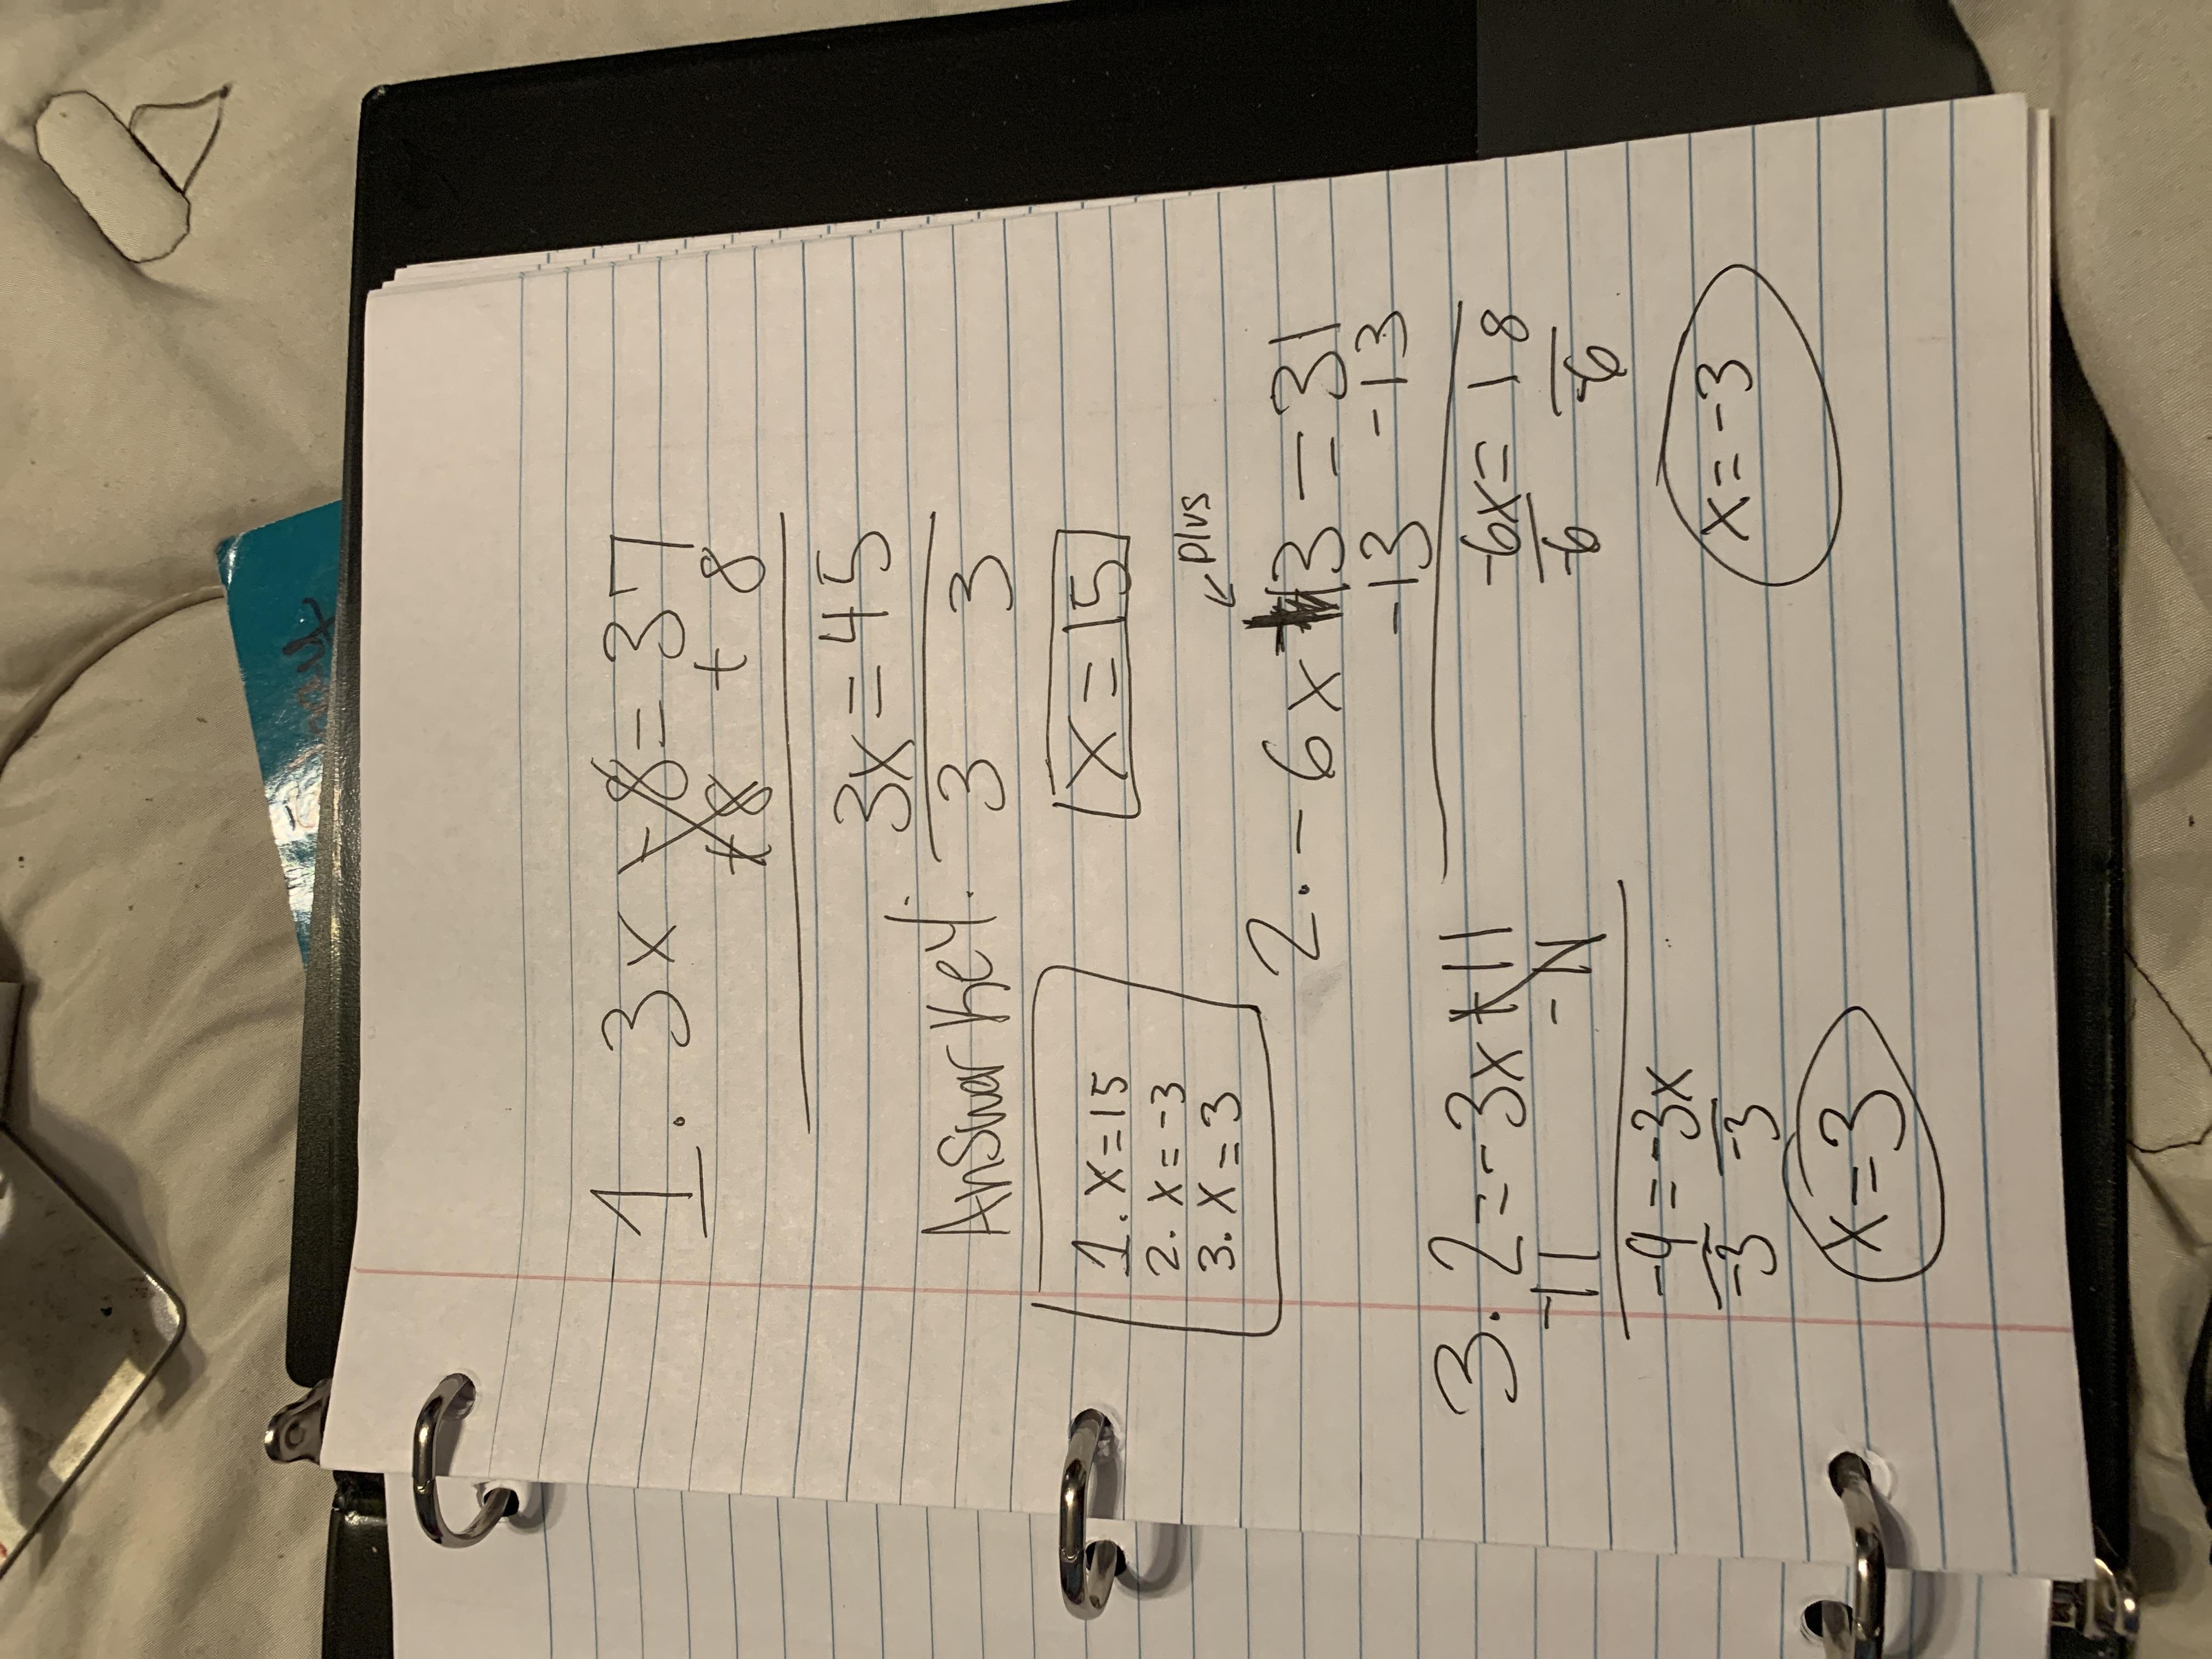 1. 3x - 8 = 37
+8 + 8
3x = 45
3 3
x = 15
Answer Key:
1. x = 15
2. x = -3
3. x = 3
← plus
2. -6x +13 = 31
-13 -13
-6x = 18
-6 -6
x = -3
3. 2 = -3x + 11
-11 - 11
-9 = -3x
-3 -3
x = 3